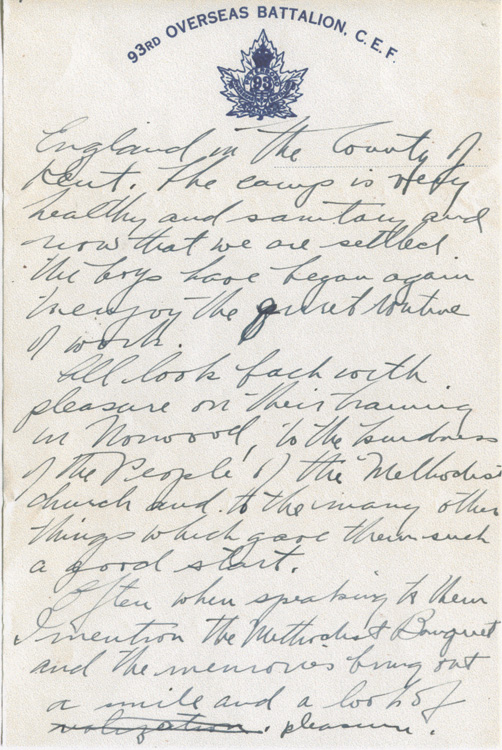 93RD OVERSEAS BATTALION, C.E.F.
93
England in the County of
Kent. The camp is very
healthy and sanitary and
now that we are settled
the boys have began again
to enjoy the quiet routine
of work.
All look back with
pleasure on their training
in Norwood, to the kindness
of the People of the Methodist
church and to the many other
things which gave them such
a good start.
Often when speaking to them
I mention the Methodist Banquet
and the memories bring out
a smile and a look of
pleasure.